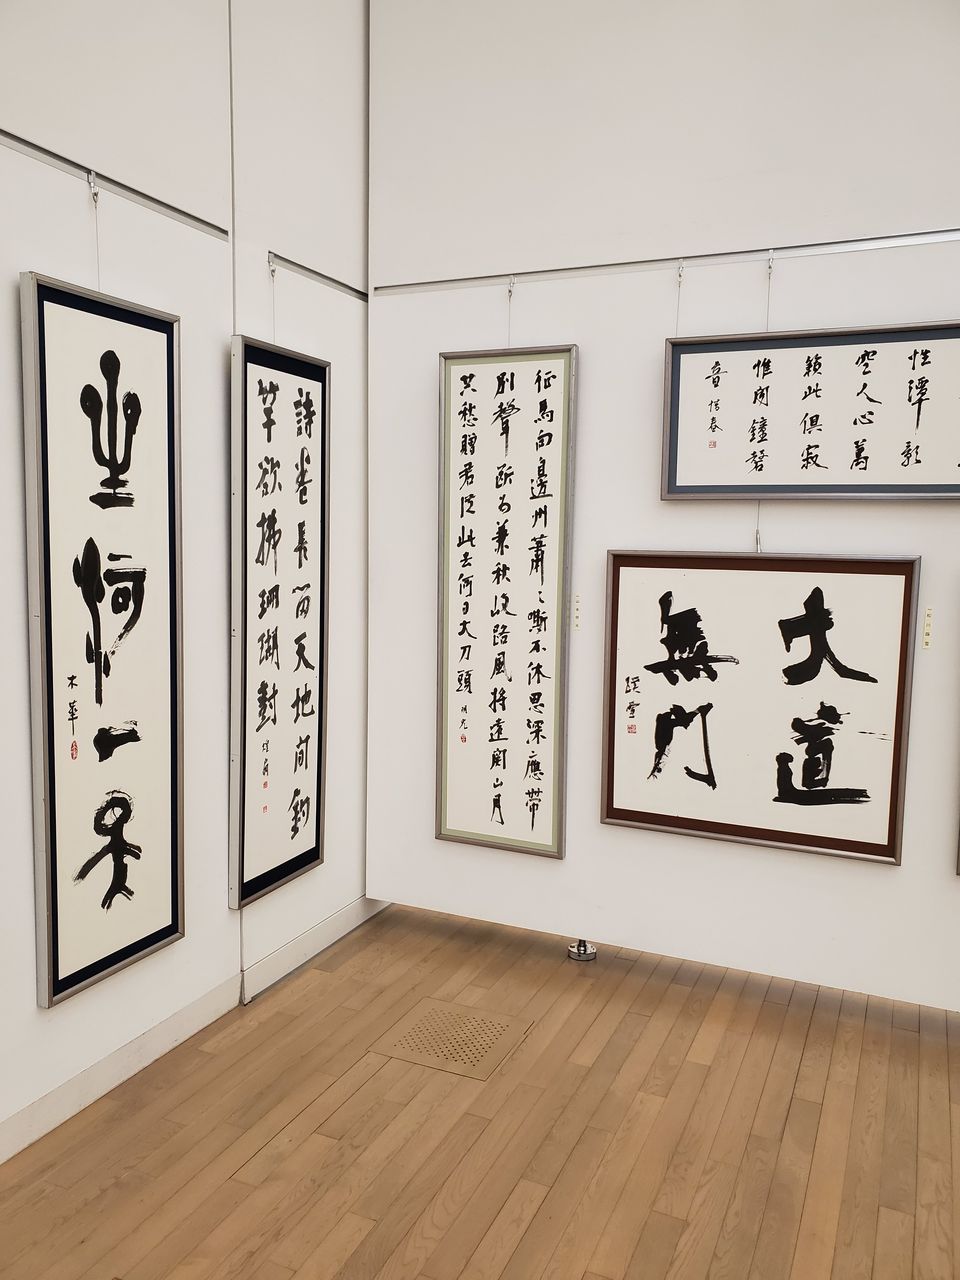 一
木華
詩卷長留天地間釣
竿欲拂珊瑚樹
征馬向邊州蕭〻嘶不休思深應帶
別聲斷為兼秋岐路風將遠関山月
共愁贈君従此去何日大刀頭
性潭影
空人心萬
籟此俱寂
惟聞鐘磬
音 惜春
大道
無門